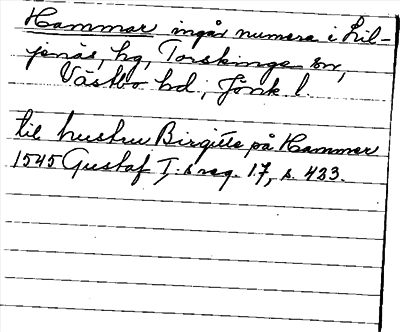 Hammar ingår numera i Lil-
jenäs, hg, Torskinge sn,
Västbo hd, Jönk l.
till hustru Birgitte på Hammar
1545 Gustaf I:s reg. 17, s. 433.